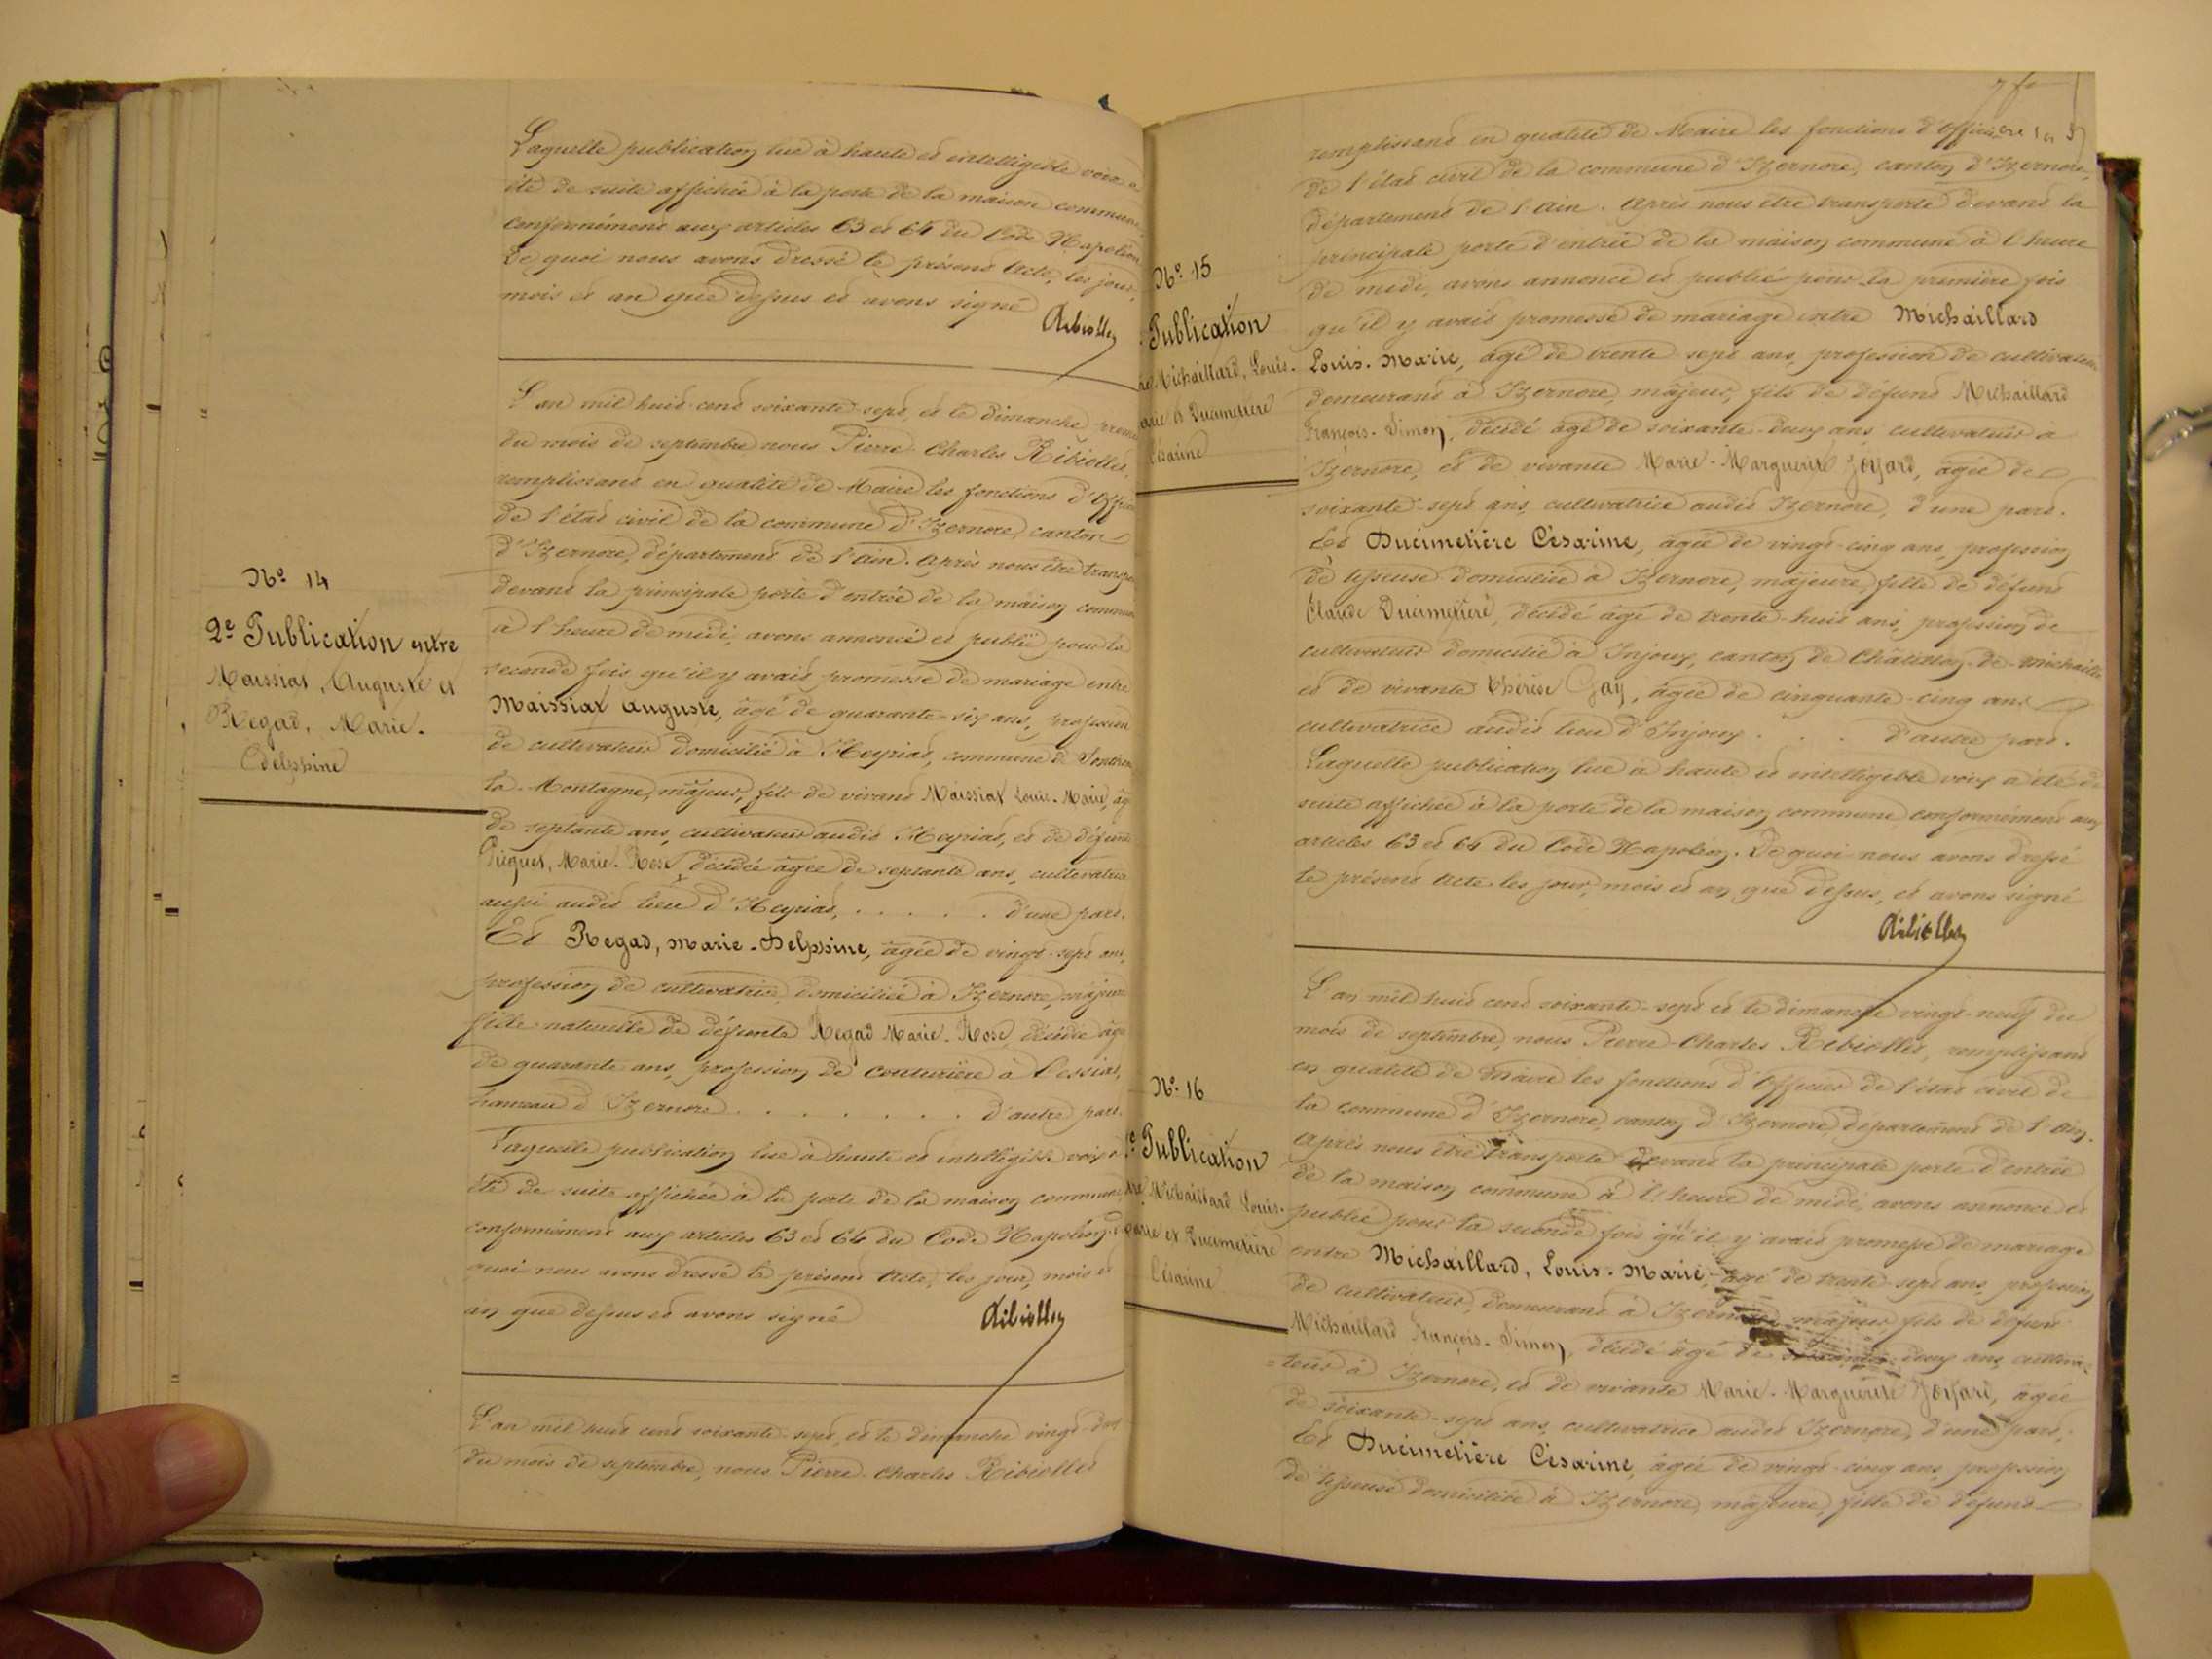 Laquelle publication lue à haute et intelligible voix a
été de suite affichée à la porte de la maison commune
conformément aux articles 63 et 64 du Code Napoléon
De quoi nous avons dressé le présent Acte, les jour,
mois et an que dessus et avons signé
Ribiollet
L'an mil huit cent soixante-sept, et le dimanche
du mois de septembre nous Pierre Charles Ribiollet
remplissant en qualité de Maire les fonctions d'Officier
de l'état civil de la commune d'Izernore, canton
d'Izernore, département de l'Ain. Après nous être
devant la principale porte d'entrée de la maison commune
à l'heure de midi, avons annoncé et publié pour la
seconde fois qu'il y avait promesse de mariage entre
Maissiat Auguste, âgé de quarante-six ans, profession
de cultivateur domicilié à Heyriat, commune de
la-Montagne, majeur, fils de vivant Maissiat Louis-Marie, âgé
de septante ans, cultivateur audit Heyriat, et de défunte
Piquet, Marie-Rose, décédée âgée de septante ans, cultivatrice
aussi audit lieu d'Heyriat, . . . . . d'une part.
Et Regad, Marie-Delphine, âgée de vingt-sept ans,
profession de cultivatrice, domiciliée à Izernore, majeure
fille naturelle de défunte Regad Marie-Rose, décédée âgée
de quarante ans, profession de couturière à Cessiat,
hameau d'Izernore . . . . . . . d'autre part.
Laquelle publication lue à haute et intelligible voix a
été de suite affichée à la porte de la maison commune
conformément aux articles 63 et 64 du Code Napoléon. De
quoi nous avons dressé le présent Acte, les jour, mois et
an que dessus et avons signé
Ribiollet
L'an mil huit cent soixante-sept, et le dimanche vingt-deux
du mois de septembre, nous Pierre-Charles Ribiollet
No 14
2e Publication entre
Maissiat, Auguste et
Regad, Marie-
Delphine
No 15
Publication
Michaillard, Louis-
Marie et Ducimetière
Césarine
remplissant en qualité de Maire les fonctions d'Officier
de l'état civil de la commune d'Izernore, canton d'Izernore,
département de l'Ain. Après nous être transporté devant la
principale porte d'entrée de la maison commune à l'heure
de midi, avons annoncé et publié pour la première fois
qu'il y avait promesse de mariage entre Michaillard
Louis-Marie, âgé de trente-sept ans, profession de cultivateur
demeurant à Izernore, majeur, fils de défunt Michaillard
François-Simon, décédé âgé de soixante-deux ans, cultivateur à
Izernore, et de vivante Marie-Marguerite Joyard, âgée de
soixante-sept ans, cultivatrice audit Izernore, d'une part.
Et Ducimetière Césarine, âgée de vingt-cinq ans, profession
de tisseuse domiciliée à Izernore, majeure, fille de défunt
Claude Ducimetière, décédé âgé de trente-huit ans, profession de
cultivateur domicilié à Injoux, canton de Châtillon-de-Michaille
et de vivante Thérèse Gay, âgée de cinquante-cinq ans
cultivatrice audit lieu d'Injoux . . . d'autre part.
Laquelle publication lue à haute et intelligible voix a été de
suite affichée à la porte de la maison commune conformément aux
articles 63 et 64 du Code Napoléon. De quoi nous avons dressé
le présent Acte les jour, mois et an que dessus, et avons signé
Ribiollet
L'an mil huit cent soixante-sept et le dimanche vingt-neuf du
mois de septembre, nous Pierre-Charles Ribiollet, remplissant
en qualité de Maire les fonctions d'Officier de l'état civil de
la commune d'Izernore, canton d'Izernore, département de l'Ain.
Après nous être transporté devant la principale porte d'entrée
de la maison commune à l'heure de midi, avons annoncé et
publié pour la seconde fois qu'il y avait promesse de mariage
entre Michaillard, Louis-Marie, âgé de trente-sept ans, profession
de cultivateur, demeurant à Izernore majeur fils de défunt
Michaillard François-Simon, décédé âgé de soixante-deux ans, cultiva-
=teur à Izernore, et de vivante Marie-Marguerite Joyard, âgée
de soixante-sept ans, cultivatrice audit Izernore, d'une part,
Et Ducimetière Césarine, âgée de vingt-cinq ans, profession
de tisseuse domiciliée à Izernore, majeure, fille de défunt
No 16
Publication
Michaillard Louis-
Marie et Ducimetière
Césarine